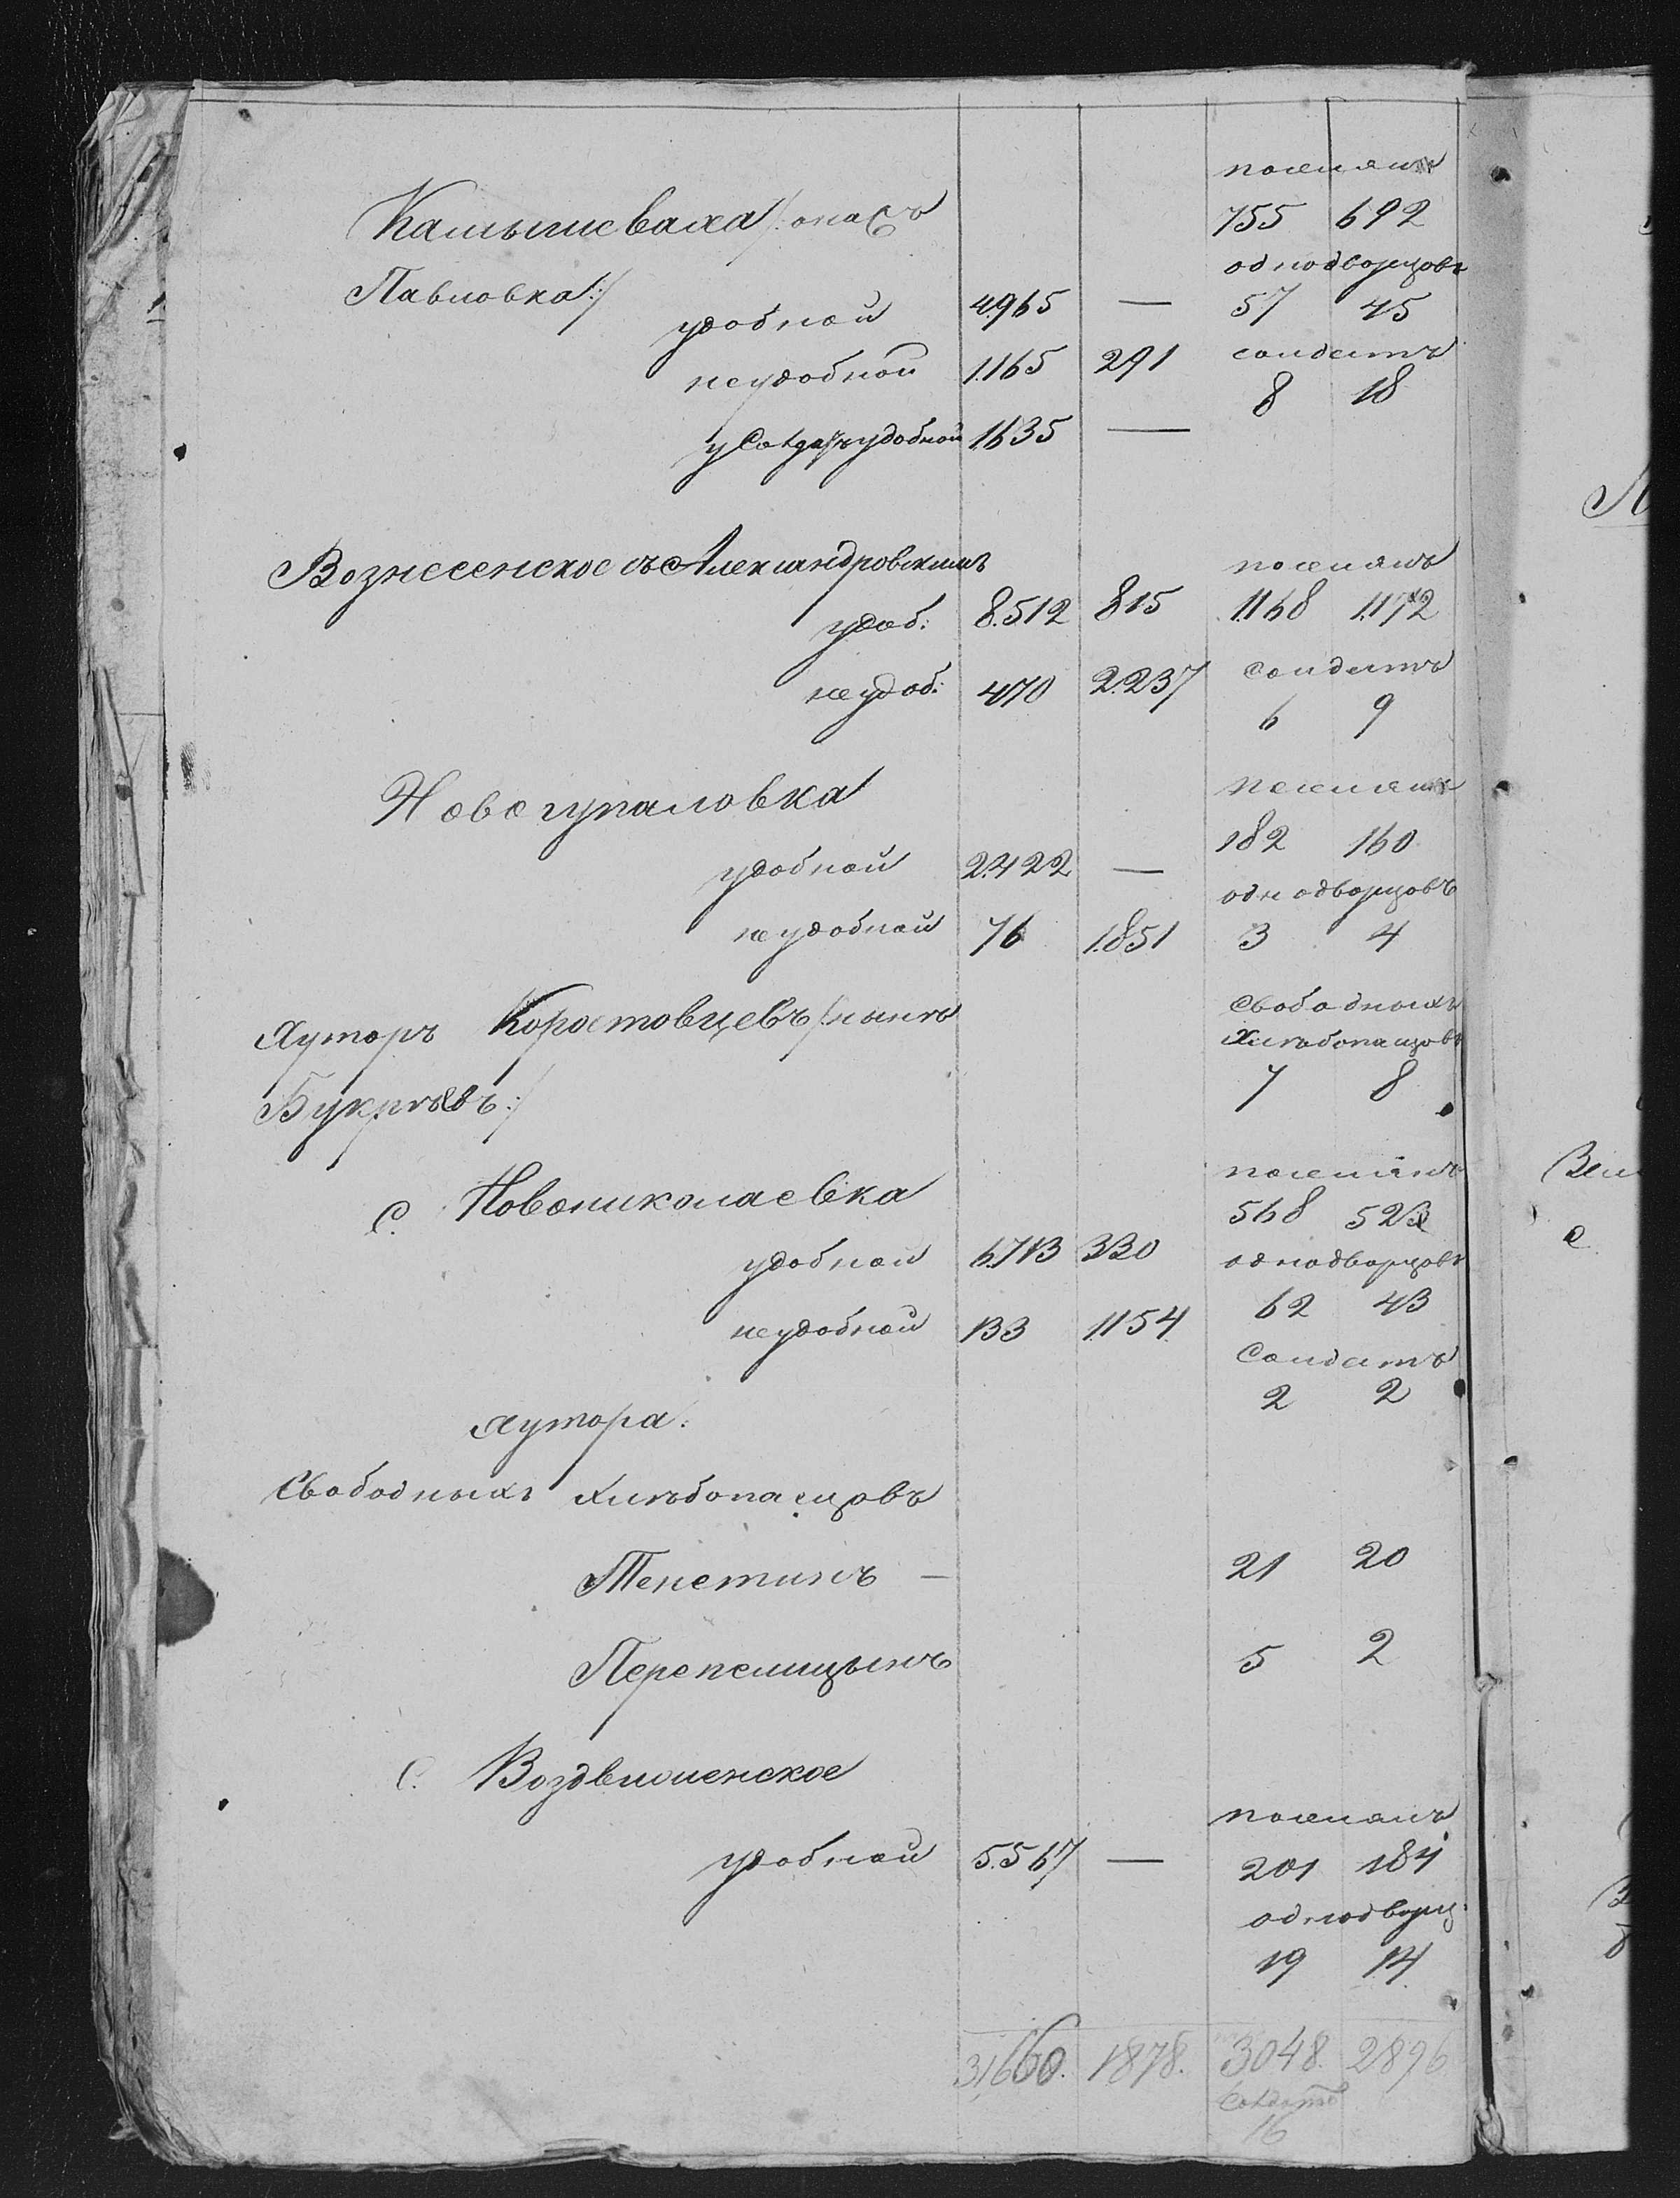 поселянъ
Камышеваха /: она съ 755 692
однодворцовъ
Павловка :/
удобной 4.965 — 57 45
солдатъ
неудобной 1.165 291 8 18
удобной 1.635 —
Вознесенское съ Александровскимъ поселянъ
удоб: 8.512 815 1.168 1.172
солдатъ
неудоб: 470 2.237 6 9
Новогупаловка поселянъ
182 160
удобной 2.422 —
однодворцовъ
неудобной 76 1.851 3 4
Хуторъ Коростовцевъ /: нынѣ свободныхъ
хлѣбопашцовъ
Букрѣевъ :/ 7 8
поселянъ
С. Новониколаевка 568 523
удобной 6.713 330 однодворцовъ
62 43
неудобной 133 1.154
Солдатъ
2 2
хутора:
Свободныхъ хлѣбопашцовъ
Тенетинъ — 21 20
Перепелицынъ 5 2
С. Воздвиженское
поселянъ
удобной 5.567 — 201 184
однодворц.
19 14
31660. 1878. 3048. 2896
Солдатъ
16